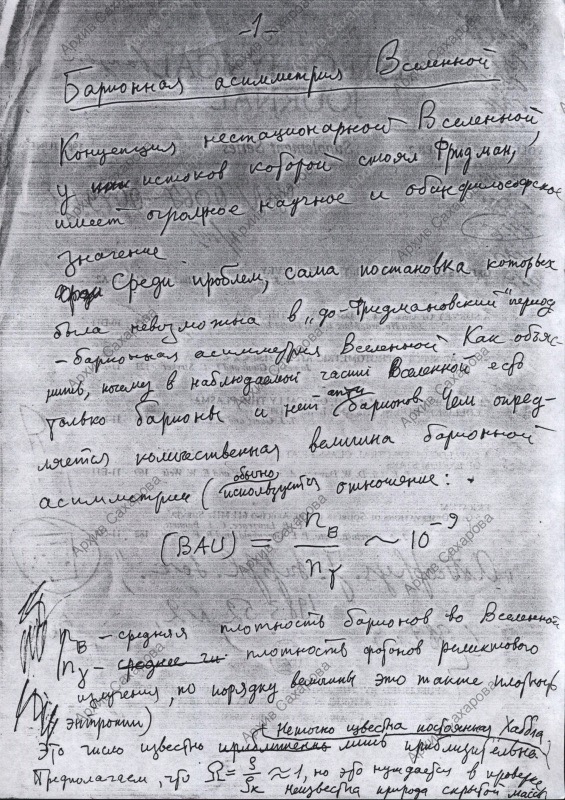 -1-
Барионная асимметрия Вселенной
Концепция нестационарной Вселенной,
у истоков которой стоял Фридман,
имеет огромное научное и общефилософское
значение
Среди проблем, сама постановка которых
была невозможна в „до-Фридмановский" период
- барионная асимметрия Вселенной Как объяс-
нить, почему в наблюдаемой части Вселенной есть
только барионы и нет антибарионов. Чем опред-
ляется количественная величина барионной
асимметрии (обычно используется отношение:
(BAU) = n_B / n_γ ~ 10^-9
n_B - средняя плотность барионов во Вселенной
n_γ - плотность фотонов реликтового
излучения, по порядку величины это также плотность
энтропии)
(Неточно известна постоянная Хаббла)
Это число известно лишь приблизительно
Предполагаем, что Ω = ρ/ρк ≈ 1, но это нуждается в проверке
Неизвестна природа скрытой массы
Архив Сахарова